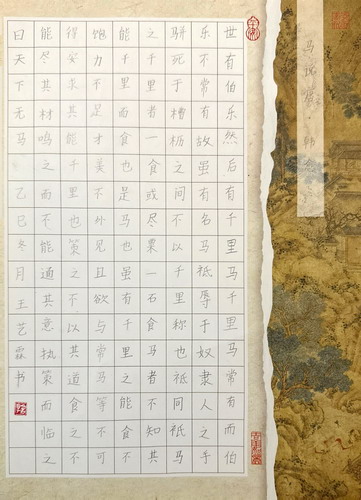 马说 韩愈
世有伯乐然后有千里马千里马常有而伯
乐不常有故虽有名马祗辱于奴隶人之手
骈死于槽枥之间不以千里称也祗同祗马
之千里者一食或尽粟一石食马者不知其
能千里而食也是马也虽有千里之能食不
饱力不足才美不外见且欲与常马等不可
得安求其能千里也策之不以其道食之不
能尽其材鸣之而不能通其意执策而临之
曰天下无马 乙巳冬月王艺霖书